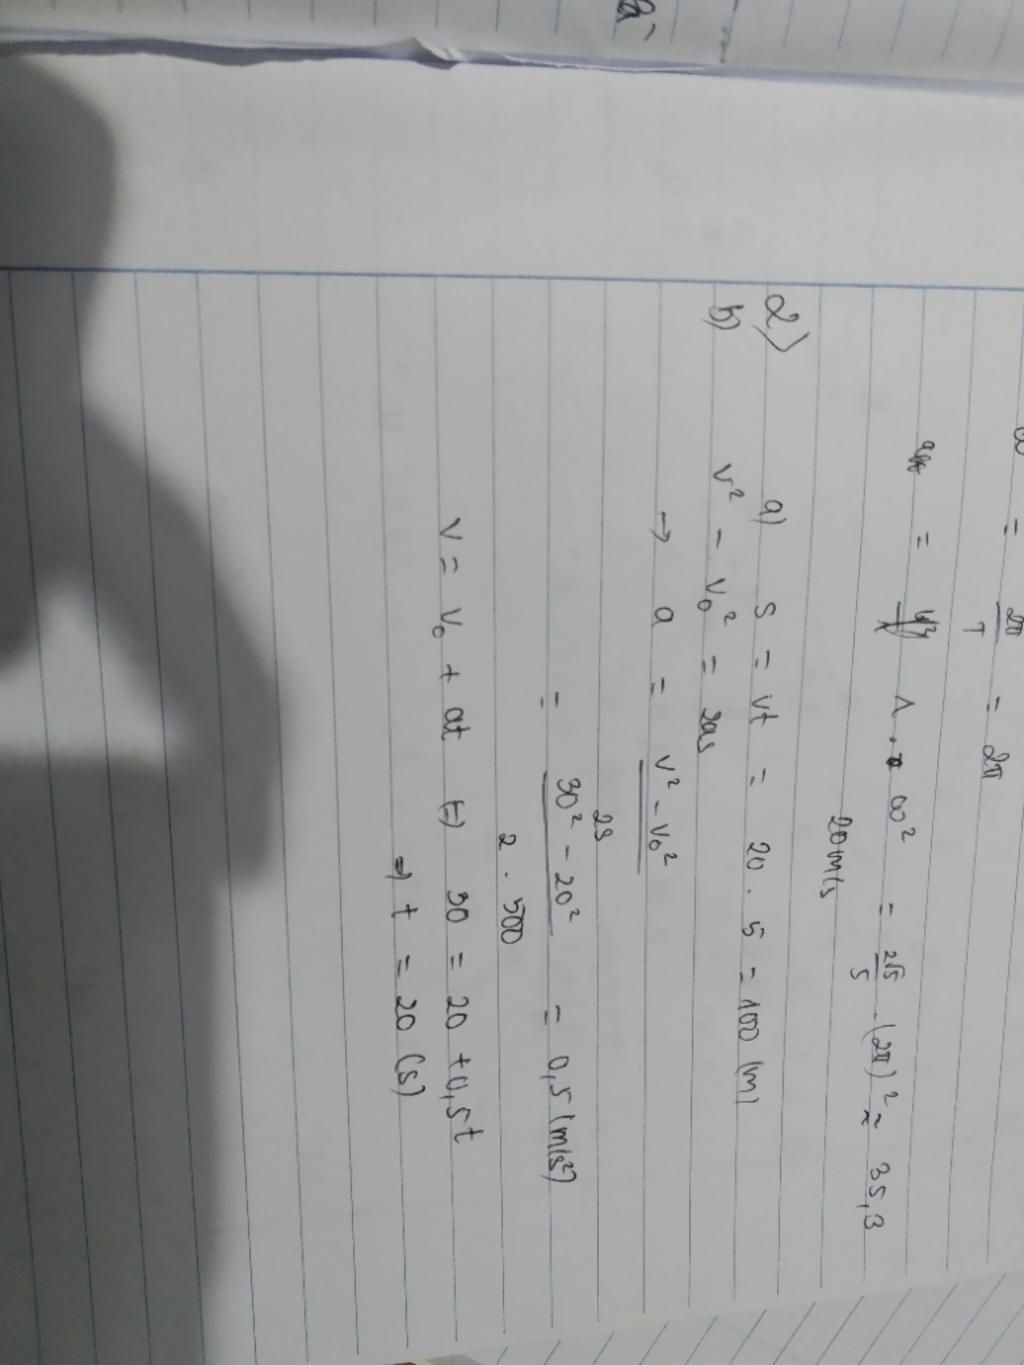 = 2π/T = 2π
= 1 . ω² = 2√5/5 . (2π)² ≈ 35,3
20m/s
2) a) s = vt = 20 . 5 = 100 (m)
b) v² - v₀² = 2as
→ a = (v² - v₀²)/2s
= (30² - 20²)/(2 . 500) = 0,5 (m/s²)
v = v₀ + at (=) 30 = 20 + 0,5t
=) t = 20 (s)